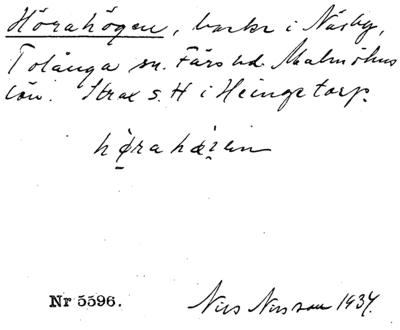 Hörahögen, backe i Näsby,
Tolånga sn. Färs hd. Malmöhus
län. Strax s. H i Heingetorp.
höra
Nr 5596.
Nils Nilsson 1934.